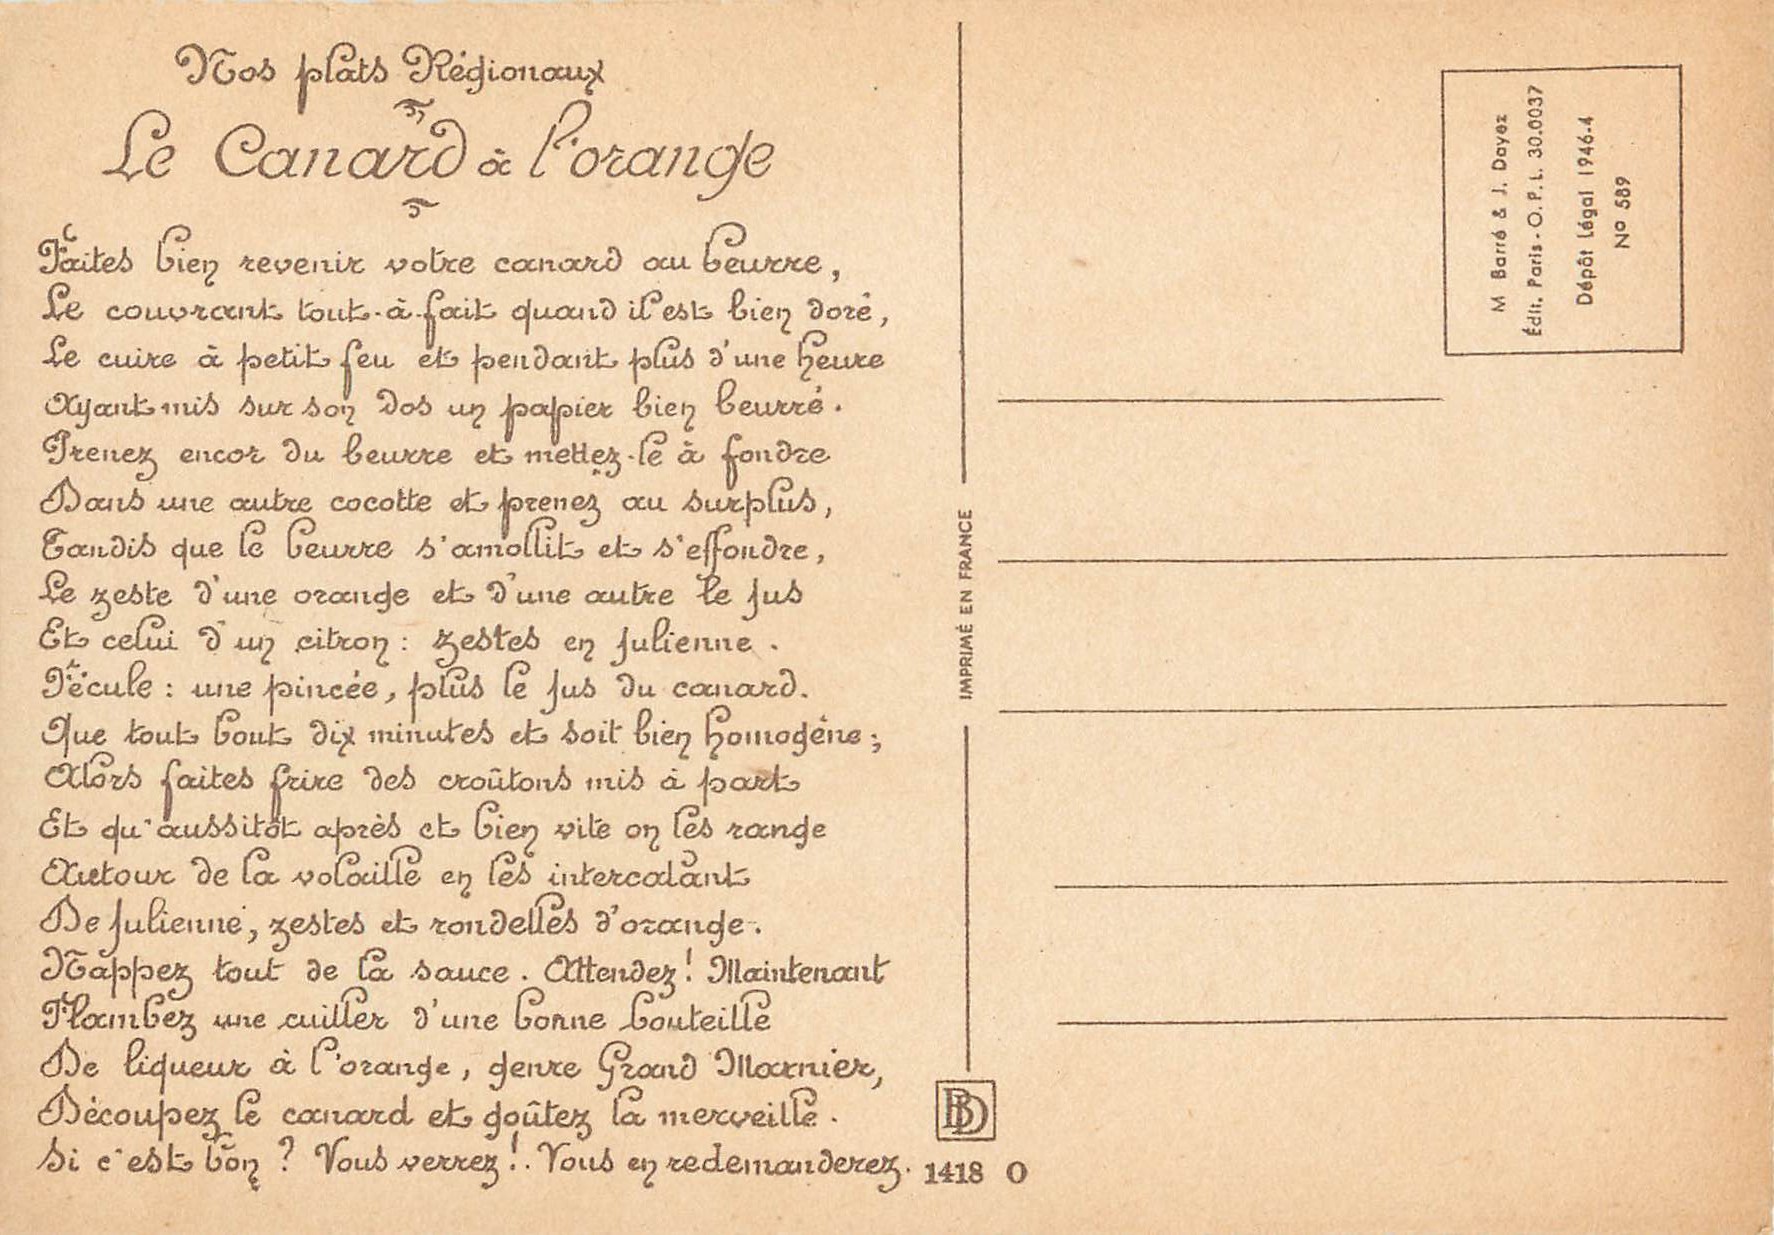 Nos plats Régionaux
Le Canard à l'orange
Faites bien revenir votre canard au beurre,
Le couvrant tout-à-fait quand il est bien doré,
Le cuire à petit feu et pendant plus d'une heure
Ayant mis sur son dos un papier bien beurré.
Prenez encor du beurre et mettez-le à fondre
Dans une autre cocotte et prenez au surplus,
Tandis que le beurre s'amollit et s'effondre,
Le zeste d'une orange et d'une autre le jus
Et celui d'un citron : zestes en julienne.
Fécule : une pincée, plus le jus du canard.
Que tout bout dix minutes et soit bien homogène ;
Alors faites frire des croûtons mis à part
Et qu'aussitôt après et bien vite on les range
Autour de la volaille en les intercalant
De julienne, zestes et rondelles d'orange.
Nappez tout de la sauce. Attendez ! Maintenant
Flambez une cuiller d'une bonne bouteille
De liqueur à l'orange, genre Grand Marnier,
Découpez le canard et goûtez la merveille.
Si c'est bon ? Vous verrez !. Vous en redemanderez.
IMPRIMÉ EN FRANCE
BD
1418 O
M Barré & J. Dayez
Édit. Paris - O. P. L. 30.0037
Dépôt Légal 1946-4
Nº 589